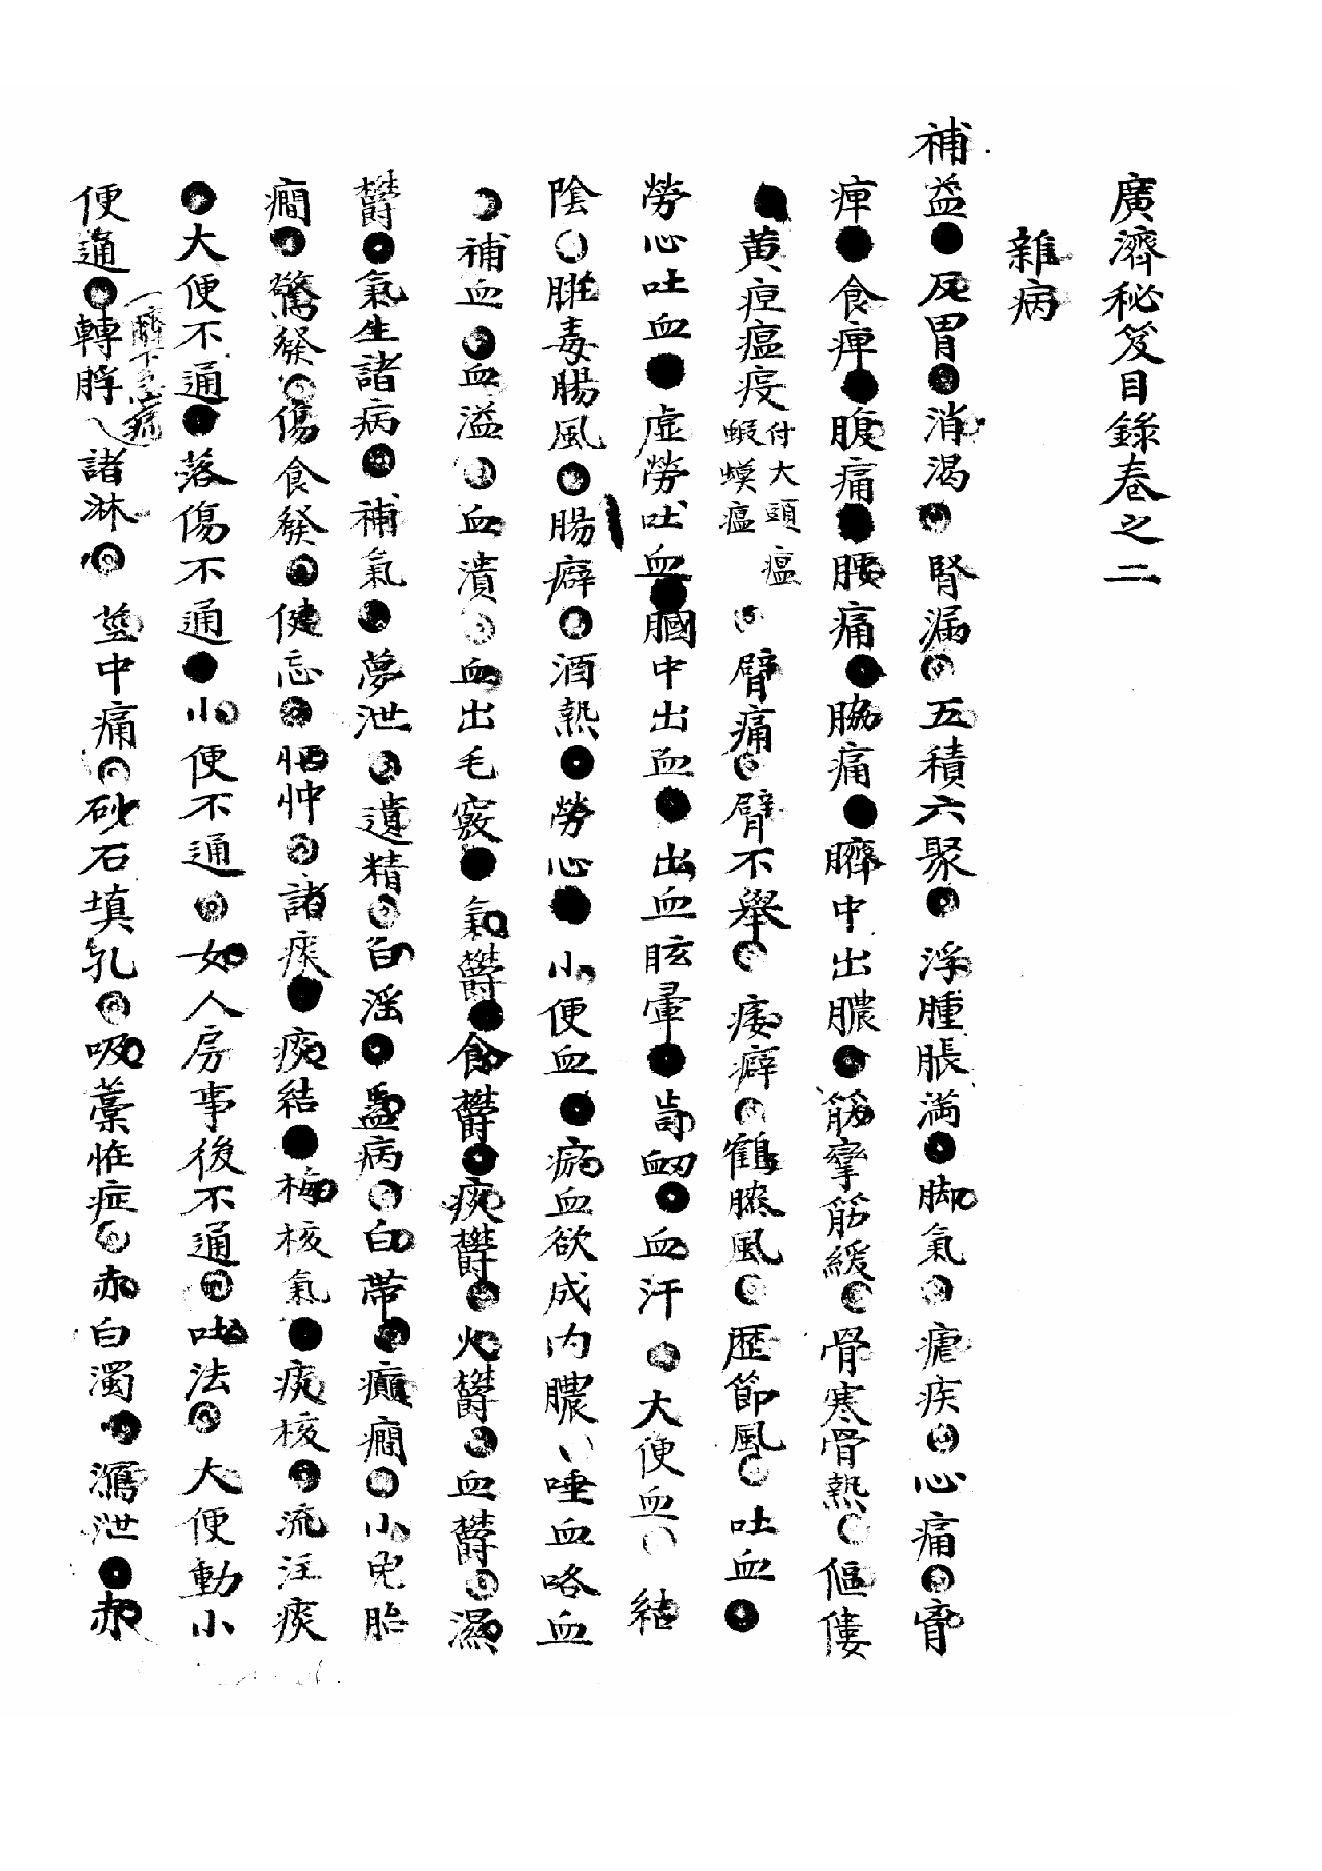 廣濟秘笈目錄卷之二
雜病
補益●反胃●消渴●腎漏●五積六聚●浮腫脹滿●脚氣●瘧疾●心痛●胷
痺●食痺●腹痛●腰痛●脇痛●臍中出膿●筋攣筋緩●骨寒骨熱●傴僂
●黄疸瘟疫付大頭瘟蝦蟆瘟●臂痛●臂不擧●痿癖●鶴膝風●歷節風●吐血●
勞心吐血●虛勞吐血●膕中出血●出血眩暈●齒衂●血汗●大便血●結
陰●臟毒腸風●腸癖●酒熱●勞心●小便血●瘀血欲成内膿●唾血咯血
●補血●血溢●血●血潰●血出毛竅●氣欝●食欝●痰欝●火欝●血欝●濕
欝●氣生諸病●補氣●夢泄●遺精●白淫●蠱病●白帶●癲癎●小兒胎
癎●驚發●傷食發●健忘●怔忡●諸痰●痰結●梅核氣●痰核●流注痰
●大便不通●落傷不通●小便不通●女人房事後不通●吐法●大便動小
便通●轉脬●諸淋●莖中痛●砂石填乳●吸藁恠症●赤白濁●瀉泄●赤